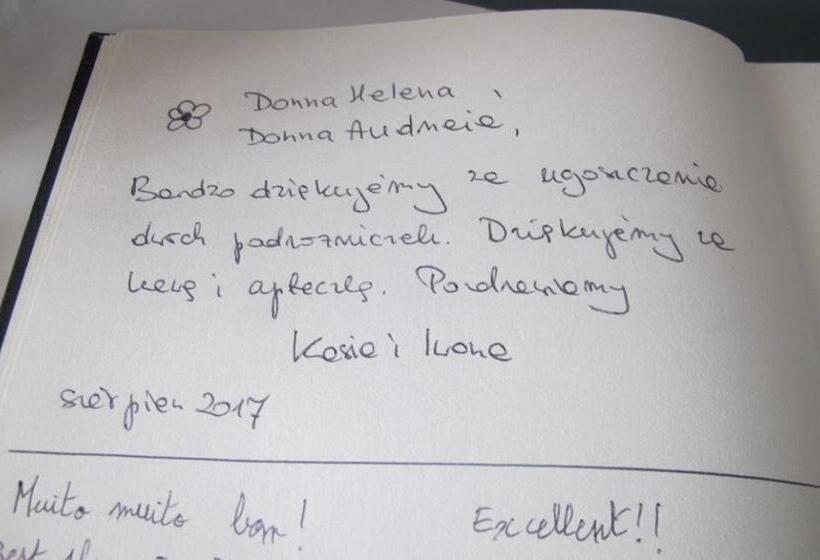 Donna Helena,
Donna Audneia,
Bardzo dziękujemy za ugoszczenie
dwóch podrózniczek. Dziękujemy za
kawę i apteczkę. Pozdrawiamy
Kasia i Iwona
sierpień 2017
Muito muito bom!
Excellent!!
Best